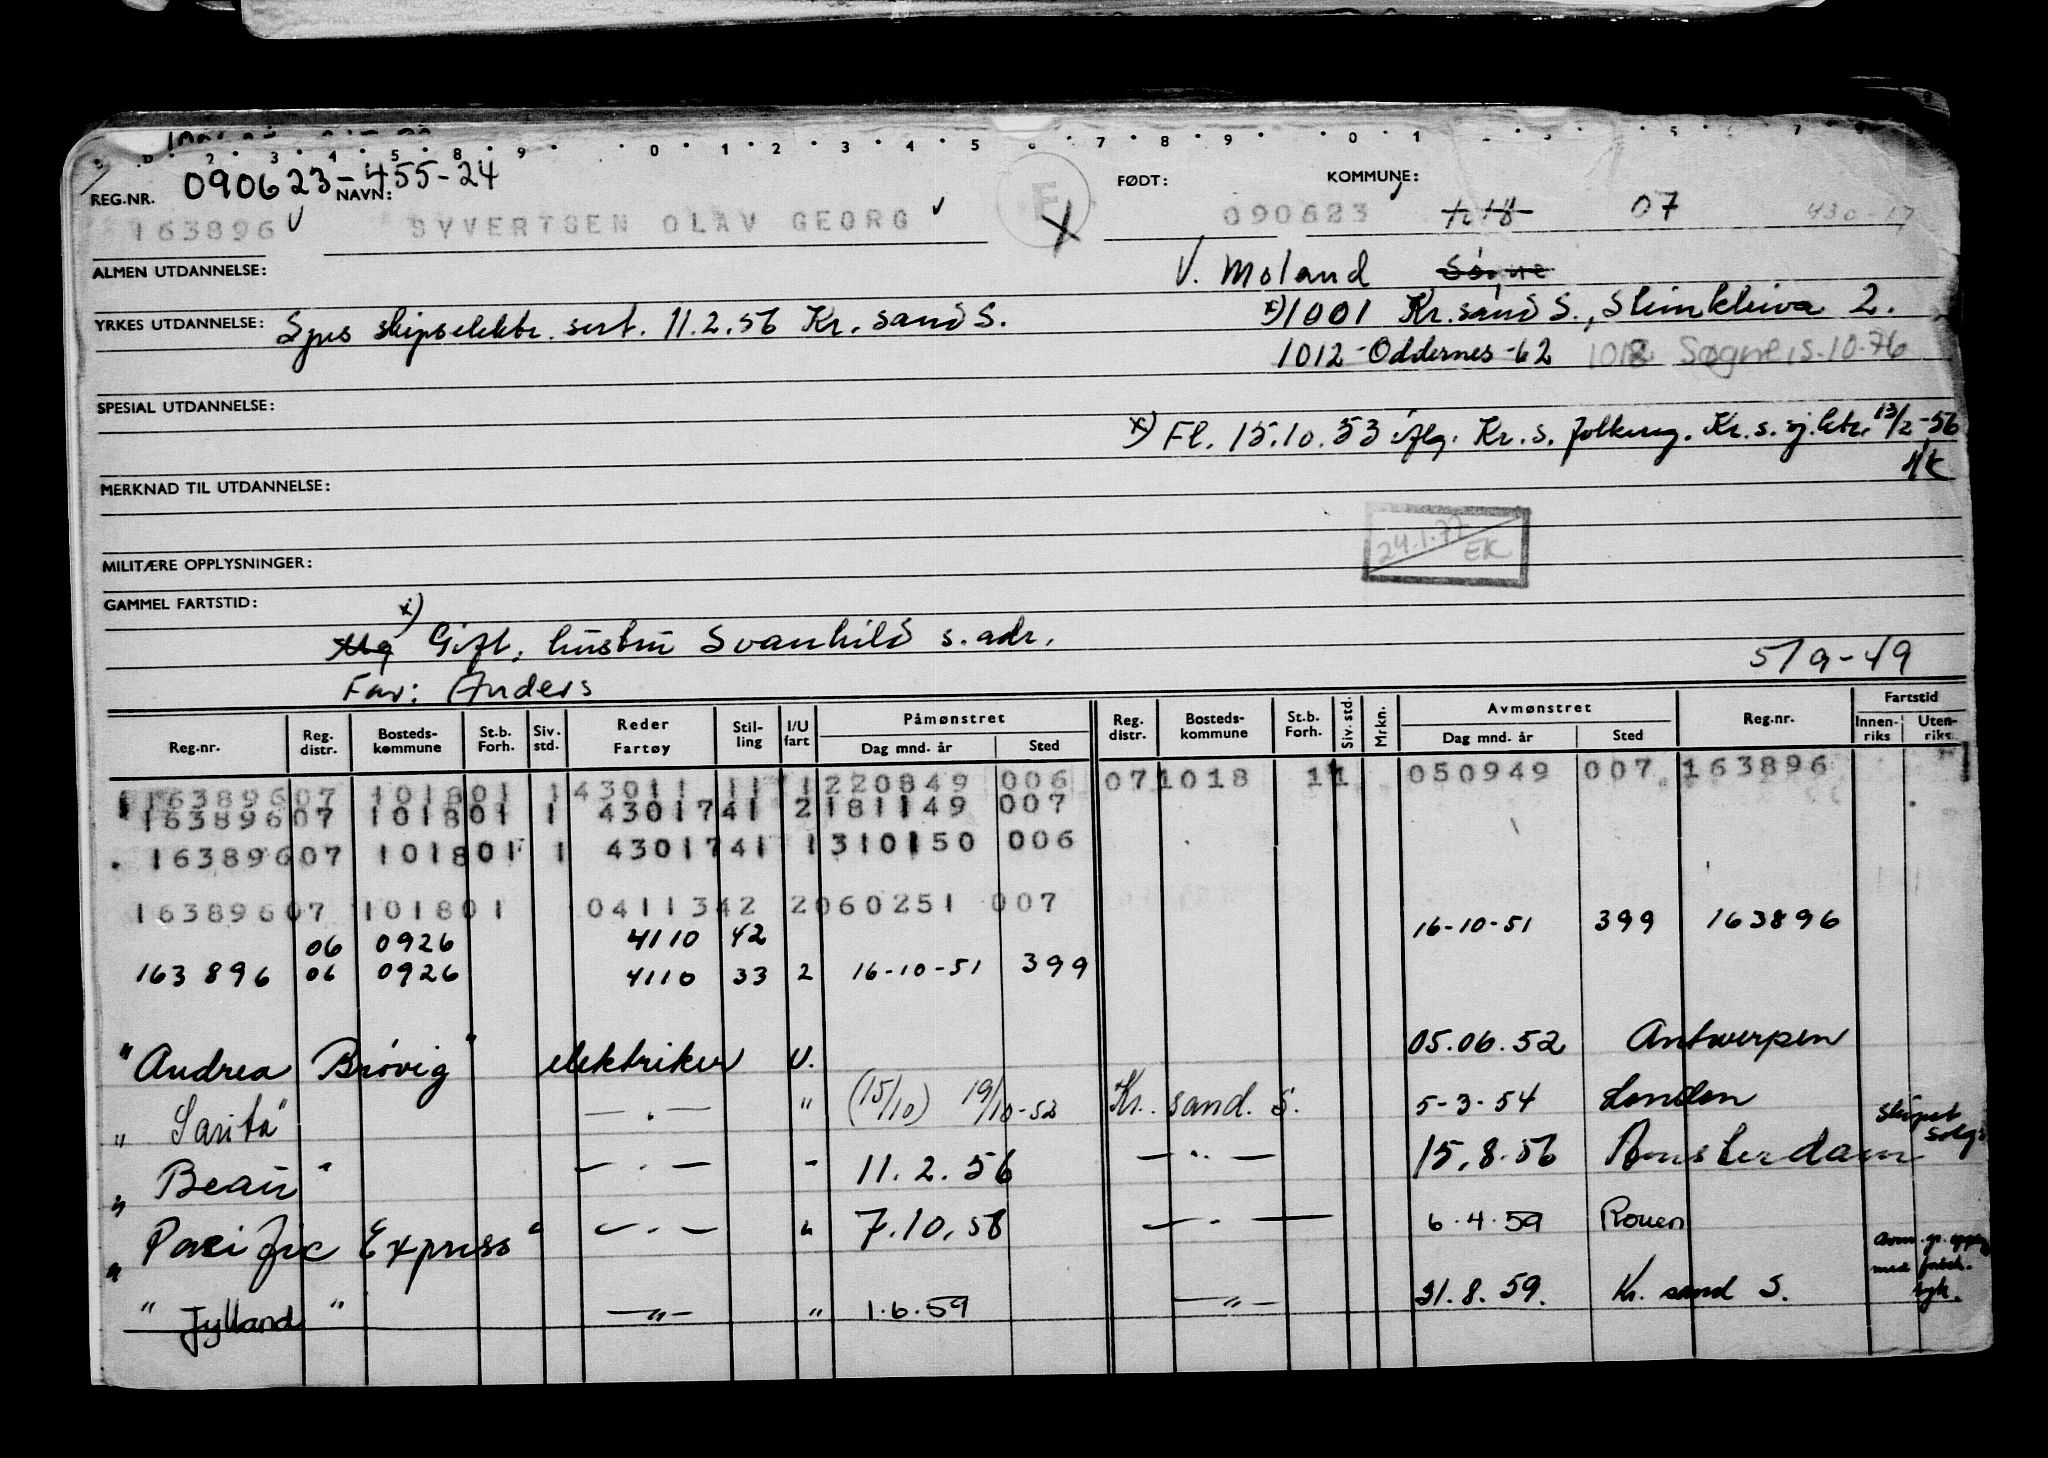 REG.NR. 090623-455-24 NAVN: FØDT: KOMMUNE:
163896 SYVERTSEN OLAV GEORG F 090623 1018 07 430-17
ALMEN UTDANNELSE: V. Moland Søgne
YRKES UTDANNELSE: Spes skipselektr. sert. 11.2.56 Kr. sand S. x) 1001 Kr.sand S., Steinkleiva 2.
1012-Oddernes-62 1018 Søgne, 5.10.76
SPESIAL UTDANNELSE:
x) Fl. 15.10.53 iflg. Kr. s. folkereg. Kr. s. sj. 13/2-56
MERKNAD TIL UTDANNELSE:
24.1.77 EK
MILITÆRE OPPLYSNINGER:
GAMMEL FARTSTID:
x)
Ug Gift, hustru Svanhild s. adr.
Far: Anders 5/9-49
Reg.nr. Reg. distr. Bosteds-kommune St.b. Forh. Siv. std. Reder Fartøy Stil-ling I/U fart Påmønstret Dag mnd. år Sted Reg. distr. Bosteds-kommune St.b. Forh. Siv. std. Mrkn. Avmønstret Dag mnd. år Sted Reg.nr. Fartstid Innen-riks Uten-riks
163896 07 1018 01 1 43011 11 1 220849 006 07 1018 11 050949 007 163896
163896 07 1018 01 1 43017 41 2 181149 007
163896 07 1018 01 1 43017 41 1 310150 006
163896 07 1018 01 04113 42 2 060251 007
06 0926 4110 42 16-10-51 399 163896
163896 06 0926 4110 33 2 16-10-51 399
"Andrea Brøvig" elektriker U. 05.06.52 Antwerpen
"Sarita" — . — " (15/10) 19/10-52 Kr. sand. S. 5-3-54 London skipet solgt
"Beau" — . — " 11.2.56 — " — 15.8.56 Amsterdam
"Pacific Express" — . — " 7.10.58 — " — 6.4.59 Rouen
"Jylland" — " — " 1.6.59 — " — 31.8.59. Kr. sand S.